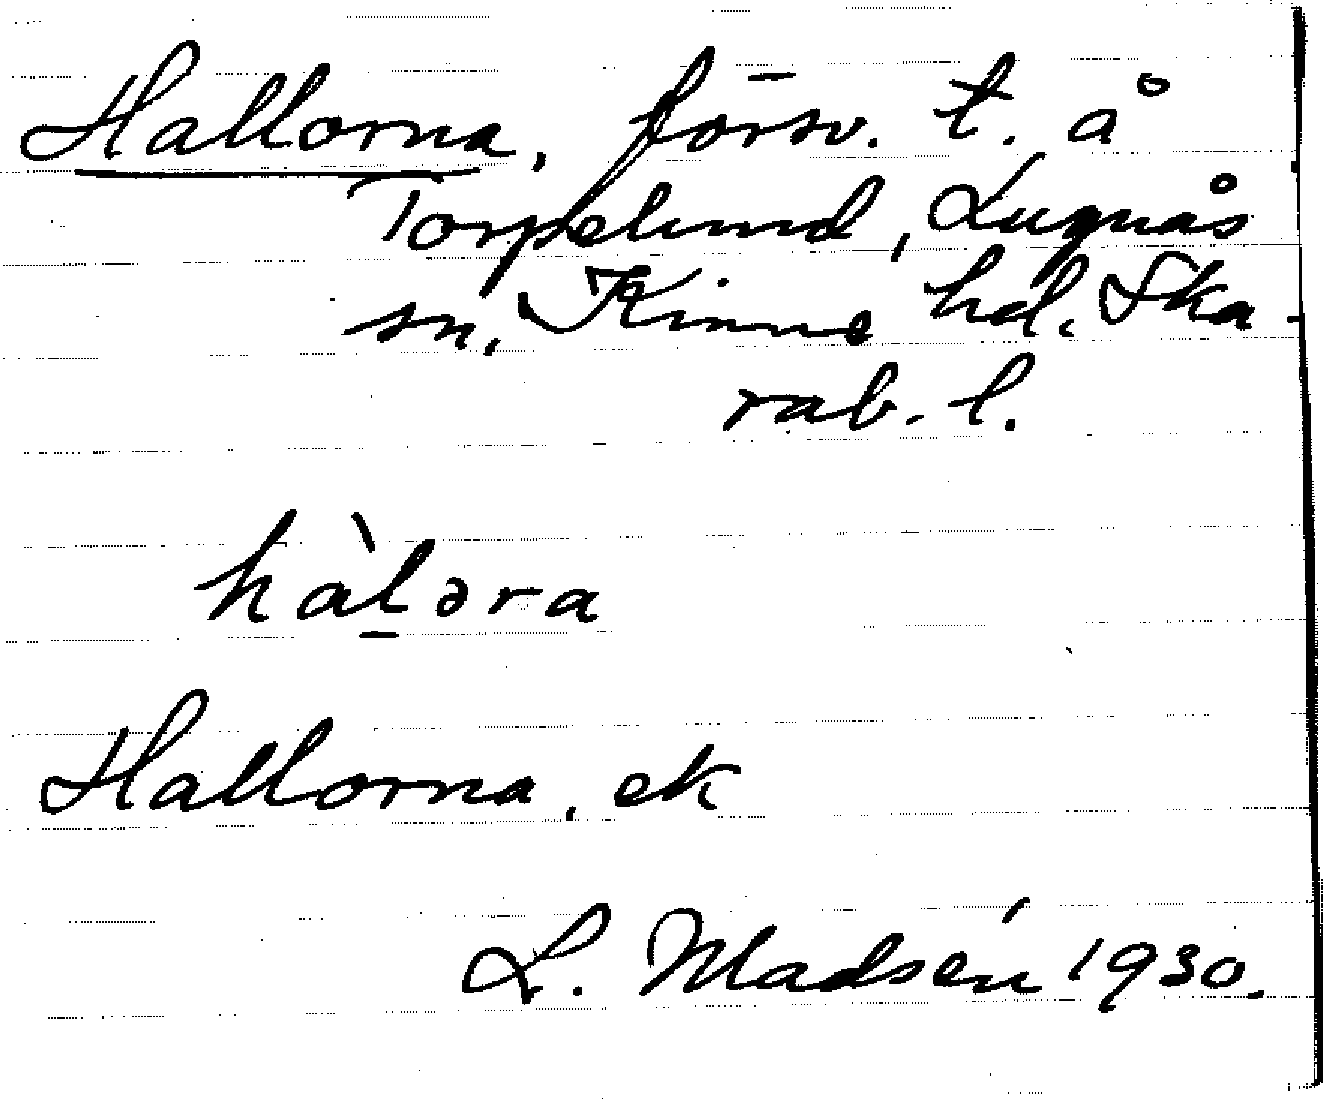 Hallorna, försv. t. å
Torpelund, Lugnås
sn, Kinne hd. Ska
rab. l.
hàl̠əra
Hallorna, ek
L. Madsén 1930.